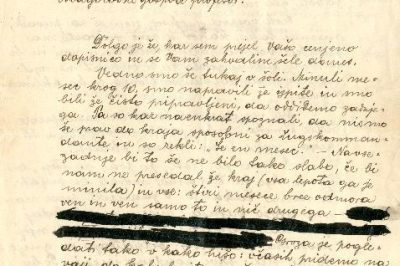 Dolgo je že, kar sem prejel Vašo cenjeno
dopisnico in se Vam zahvalim šele danes.
Vedno smo še tukaj v šoli. Minuli me-
sec krog 10. smo napravili že izpite in smo
bili že čisto pripravljeni, da odidemo zadnje-
ga. Pa so kar naenkrat spoznali, da nismo
še prav do kraja sposobni za Zugskomman-
dante, in so rekli: „Še en mesec." – Navse-
zadnje bi to še ne bilo tako slabo, če bi
nam ne presedal že kraj (vsa lepota ga je
minila) in vse: štiri mesece brez odmora
ven in ven samo to in nič drugega –
se pogle-
dati tako v kako hišo: včasih pridemo na